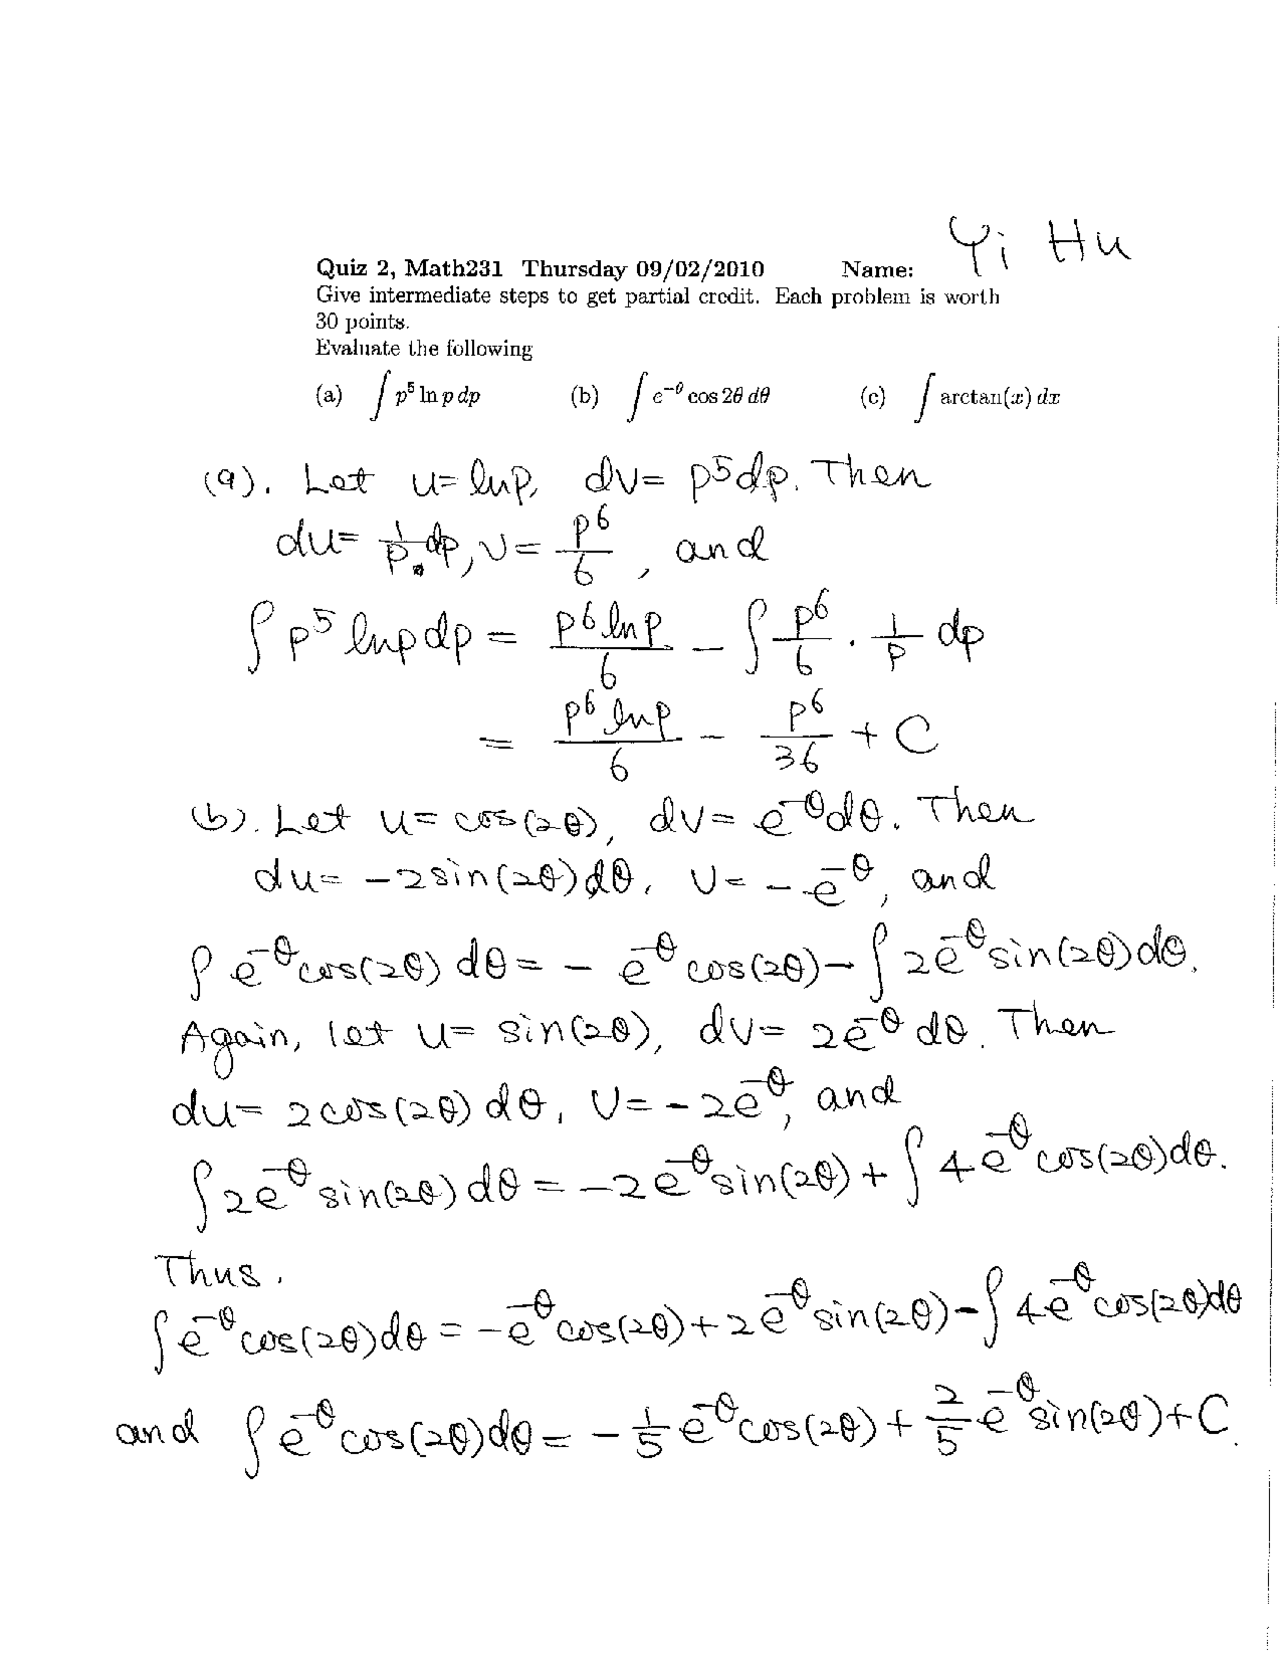 Yi Hu
Quiz 2, Math231 Thursday 09/02/2010 Name:
Give intermediate steps to get partial credit. Each problem is worth
30 points.
Evaluate the following
(a) ∫ p⁵ ln p dp (b) ∫ e^{-θ} cos 2θ dθ (c) ∫ arctan(x) dx
(a). Let u = ln p, dv = p⁵dp. Then
du = 1/p dp, v = p⁶/6, and
∫ p⁵ ln p dp = p⁶ ln p/6 − ∫ p⁶/6 · 1/p dp
= p⁶ ln p/6 − p⁶/36 + C
(b). Let u = cos(2θ), dv = e^{-θ}dθ. Then
du = −2sin(2θ)dθ, v = −e^{-θ}, and
∫ e^{-θ}cos(2θ) dθ = −e^{-θ}cos(2θ) − ∫ 2e^{-θ}sin(2θ)dθ.
Again, let u = sin(2θ), dv = 2e^{-θ}dθ. Then
du = 2cos(2θ)dθ, v = −2e^{-θ}, and
∫ 2e^{-θ}sin(2θ)dθ = −2e^{-θ}sin(2θ) + ∫ 4e^{-θ}cos(2θ)dθ.
Thus,
∫ e^{-θ}cos(2θ)dθ = −e^{-θ}cos(2θ) + 2e^{-θ}sin(2θ) − ∫ 4e^{-θ}cos(2θ)dθ
and ∫ e^{-θ}cos(2θ)dθ = −1/5 e^{-θ}cos(2θ) + 2/5 e^{-θ}sin(2θ) + C.